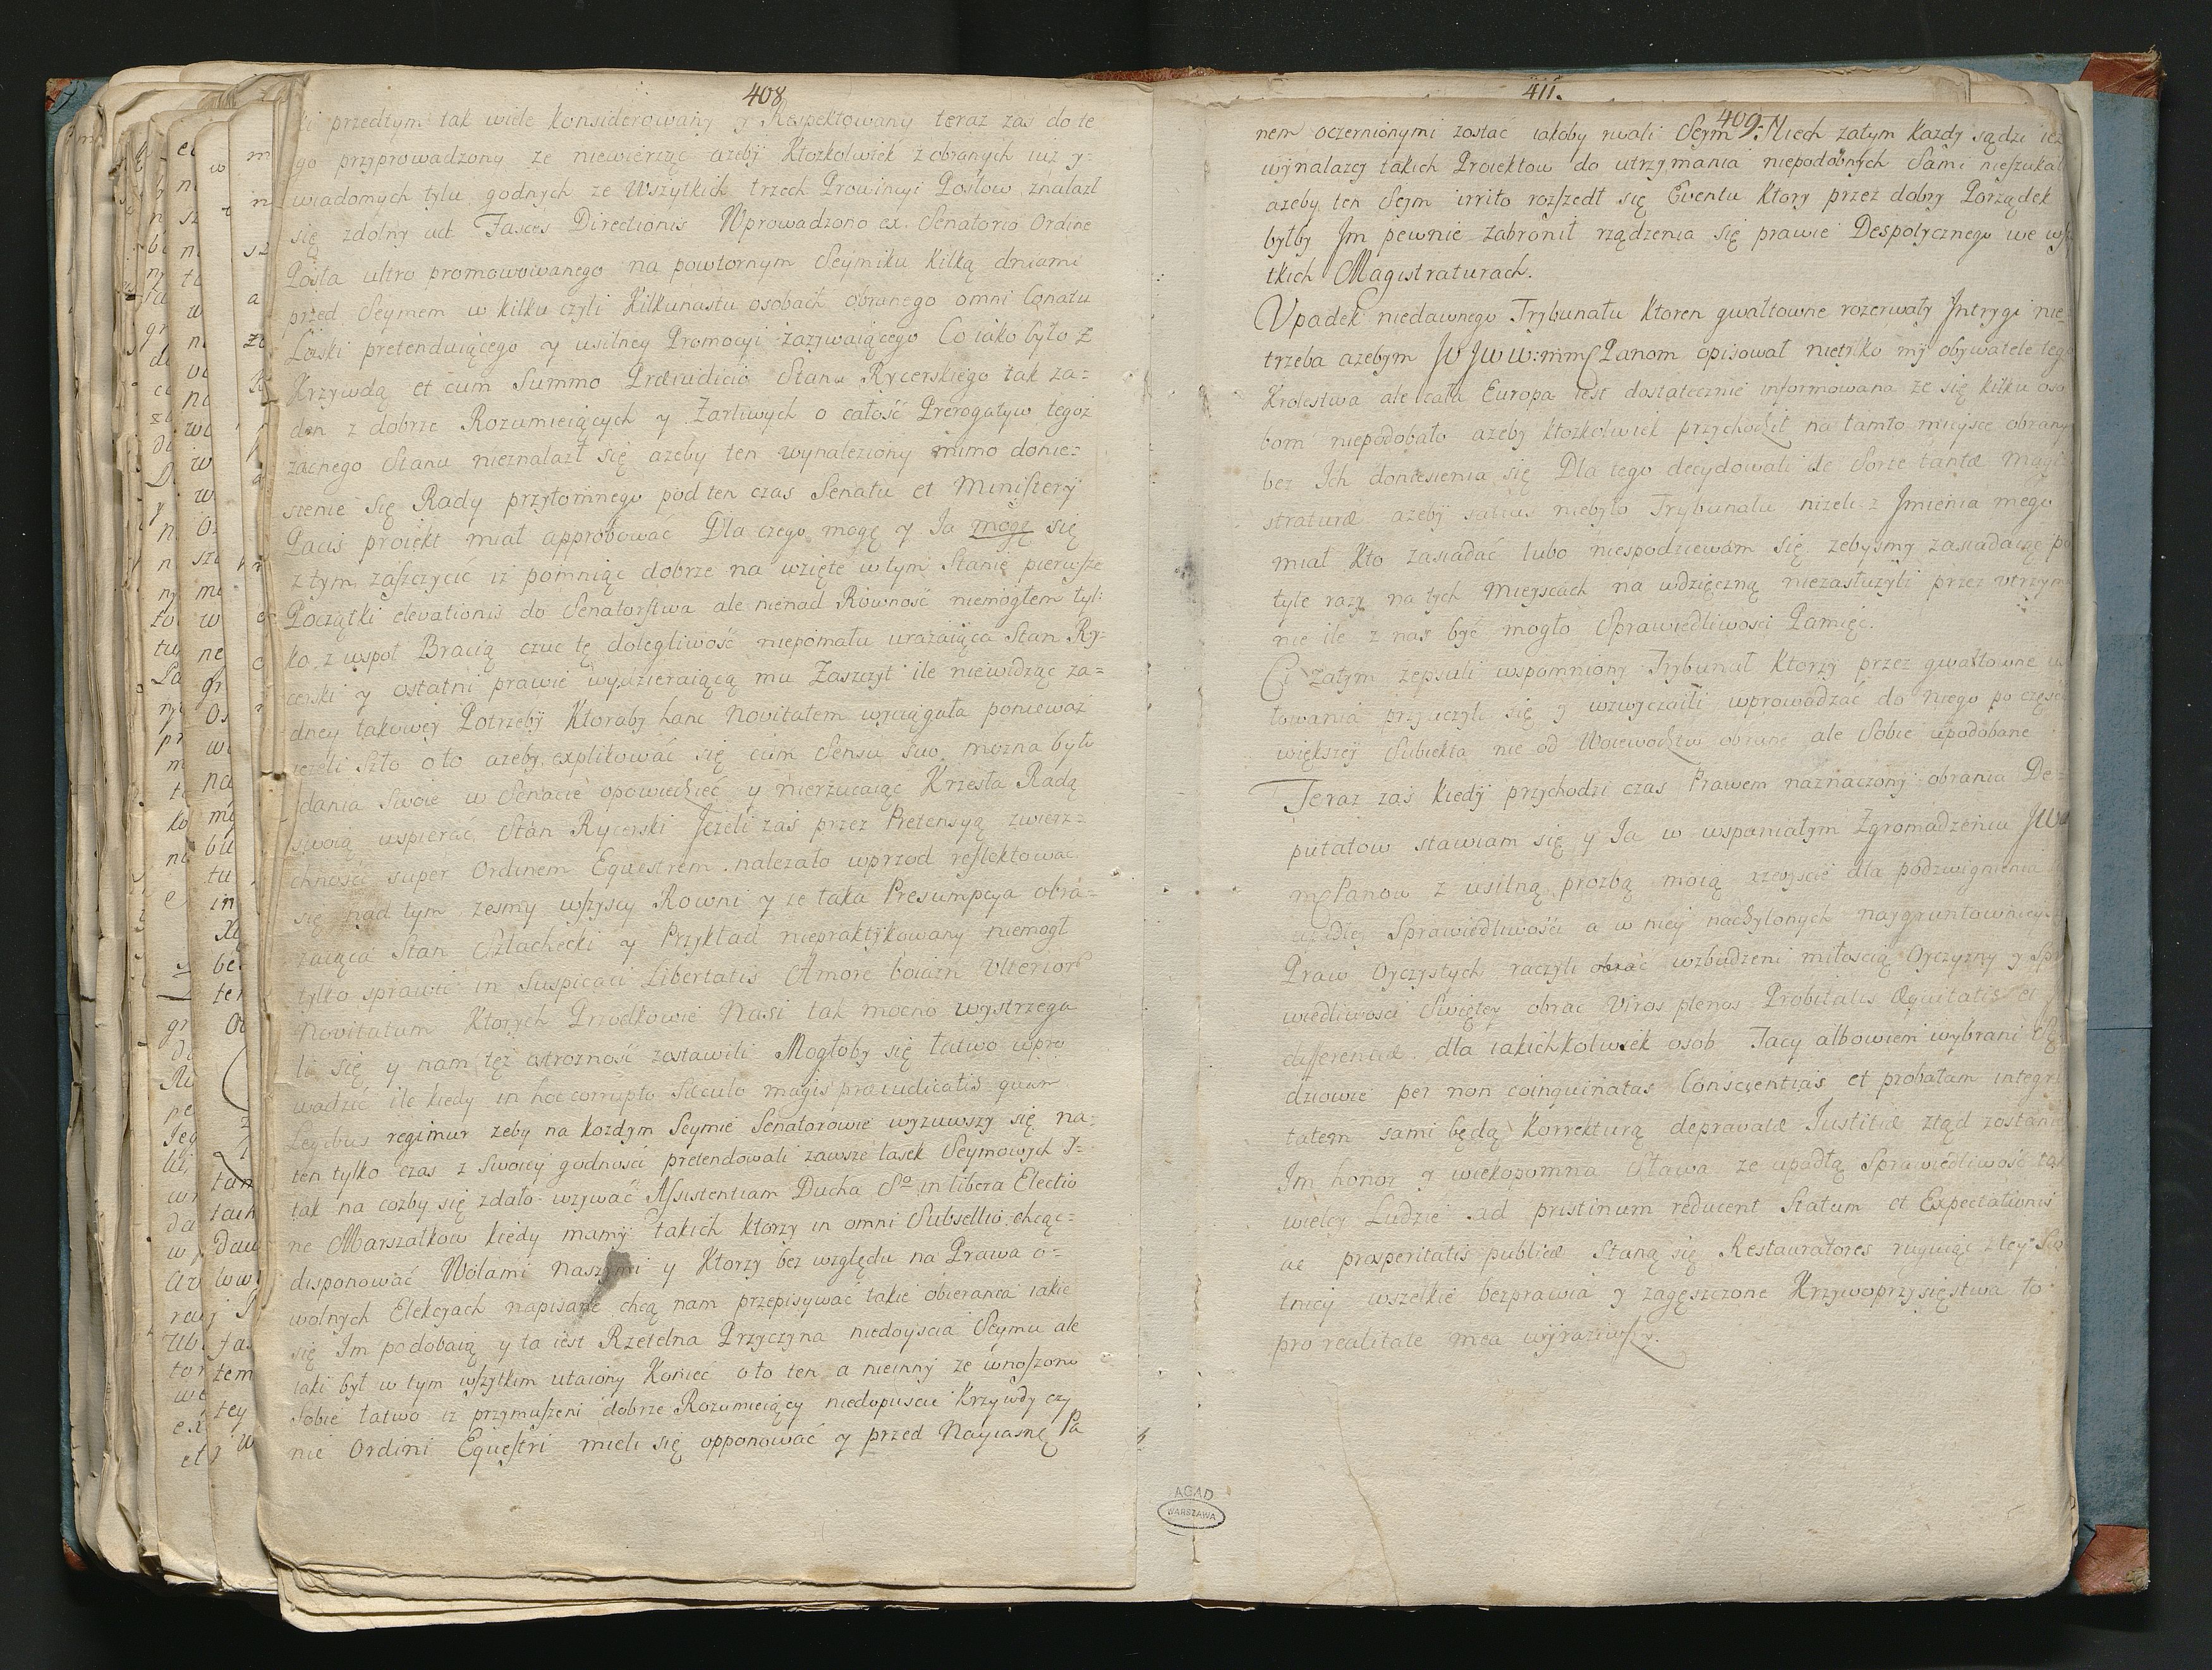 408
ki przedtym tak wiele konsiderowany y Respektowany teraz zas do te
go przyprowadzony ze niewierząc azeby Ktozkolwiek z obranych iuz y
wiadomych tylu godnych ze Wszytkich trzech Prowincyi Posłow znalazł
się zdolny ad Fasces Directionis Wprowadzono ex Senatorio Ordine
Posła ultro promowowanego na powtornym Seymiku kilką dniami
przed Seymem w kilku czyli Kilkunastu osobach obranego omni Conatu
Laski pretenduiącego y usilney Promocyi zazywaiącego Co iako było z
Krzywdą et cum Summo Præiudicio Stanu Rycerskiego tak za=
den z dobrze Rozumieiących y Zarliwych o całość Prerogatyw tegoz
zacnego Stanu nieznalazł się azeby ten wynaleziony mimo donie=
szenie się Rady przytomnego pod ten czas Senatu et Ministerij
Pacis proiekt miał approbować Dla czego mogę y Ia mogę się
z tym zaszczycić iz pomniąc dobrze na wzięte w tym Stanie pierwsze
Początki elevationis do Senatorstwa ale nienad Rowność niemogłem tyl:
ko z wspoł Bracią czuc tę dolegliwość niepomału urazaiąca Stan Ry=
cerski y ostatni prawie wydzieraiącą mu Zaszczyt ile niewidząc za=
dney takowey Potrzeby Ktoraby hanc Novitatem wyciągała poniewaz
iezeli Szło oto azeby explikować się cum Sensu Suo mozna było
zdania Swoie w Senacie opowiedzieć y nierzucaiąc Krzesła Radą
swoią wspierać Stan Rycerski Jezeli zaś przez Pretensyą zwierz=
chności super Ordinem Equestrem nalezało wprzod reflektować
się nad tym zesmy wszyscy Rowni y ze taka Presumpcya obra=
zaiąca Stan Szlachecki y Przykład niepraktykowany niemogł
tylko sprawić in Suspicaci Libertatis Amore boiazń Ulterior
Novitatum Ktorych Przodkowie Nasi tak mocno wystrzega
li się y nam tęz ostrozność zostawili Mogłoby się łatwo wpro
wadzić ile kiedy in hoc corrupto Sæculo magis præiudicatis quam
Legibus regimur zeby na kozdym Seymie Senatorowie wyzuwszy się na=
ten tylko czas z Swoiey godności pretendowali zawsze lasek Seymowych Y=
tak na cozby się zdało wzywać Assistentiam Ducha So in libera Electio
ne Marszałkow kiedy mamy takich ktorzy in omni Subsellio chcąc=
disponować Wolami naszymi y Ktorzy bez względu na Prawa o=
wolnych Elekcyach napisane chcą nam przepisywać takie obierania iakie
się Im podobaią y ta iest Rzetelna Przyczyna niedoyscia Seymu ale
iaki był w tym wszytkim utaiony Koniec oto ten a nieinny ze wnoszono
Sobie łatwo iz przymuszeni dobrze Rozumieiący niedopuscić Krzywdy czy
nic Ordini Equestri mieli się opponować y przed Nayiasnę Pa
411.
409.
nem oczernionymi zostać iakoby rwali Seym Niech zatym kazdy sądzi iez
wynalazcy takich Proiektow do utrzymania niepodobnych Sami nieszukal
azeby ten Seym irrito rozszedł się Eventu Ktory przez dobry Porządek
byłby Jm pewnie zabronił rządzenia się prawie Despotycznego we wsz
tkich Magistraturach.
Upadek niedawnego Trybunału Ktoren gwałtowne rozerwały Intrygi nie=
trzeba azebym W Panom opisował nietylko my obywatele tego
Krolestwa ale cała Europa iest dostatecznie informowana ze się kilku oso
bom niepodobało azeby ktozkolwiek przychodził na tamto mieysce obrany
bez Ich doniesienia się Dla tego decydowali de Sorte tantæ magi
straturæ azeby satius niebyło Trybunalu nizeli z Imienia mego
miał Kto zasiadać lubo niespodziewam się zebysmy zasiadaiąc po
tyle razy na tych Mieyscach na wdzięczną niezasłuzyli przez utrzyma
nie ile z nas być mogło Sprawiedliwosci Pamięć.
Ci zatym zepsuli wspomniony Trybunał Ktorzy przez gwałtowne
towania przyuczyli się y wzwyczaili wprowadzać do niego po częsci
większey Subiekta nie od Woiewodztw obrane ale Sobie upodobane
Teraz zaś kiedy przychodzi czas Prawem naznaczony obrania De=
putatow stawiam się y Ia w wspaniałym Zgromadzeniu JWW
Panow z usilną prozbą moią azebyscie dla podzwignienia
upadłey Sprawiedliwości a w niey nachylonych naygruntownieysz
Praw Oyczystych raczyli obrać wzbudzeni miłoscią Oyczyzny y Spr
wiedliwosci Swiętey obrac Viros plenos Probitatis Æquitatis et
differentiæ dla iakichkolwiek osob Tacy albowiem wybrani Sę
dziowie per non coinquinatas Conscientias et probatam integri
tatem sami będą Korrekturą depravatæ Justitiæ ztąd zostanie
Im honor y wiekopomna Sława ze upadłą Sprawiedliwość tak
wielcy Ludzie ad pristinum reducent Statum et Expectationis
ac prosperitatis publicæ Staną się Restauratores ruguiąc z tey Św
tnicy wszelkie bezprawia y zagęszczone Krzywoprzysięstwa to
pro realitate mea wyraziwszy.
AGAD
WARSZAWA